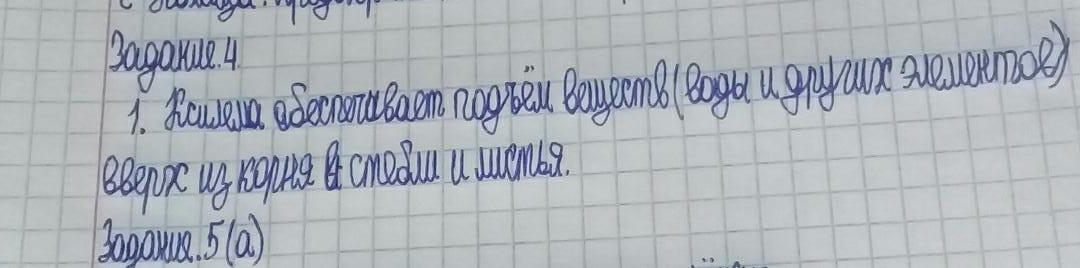 Задание.4.
1. Ксилема обеспечивает подъём веществ (воды и других элементов)
вверх из корня в стебли и листья.
Задания.5(а)